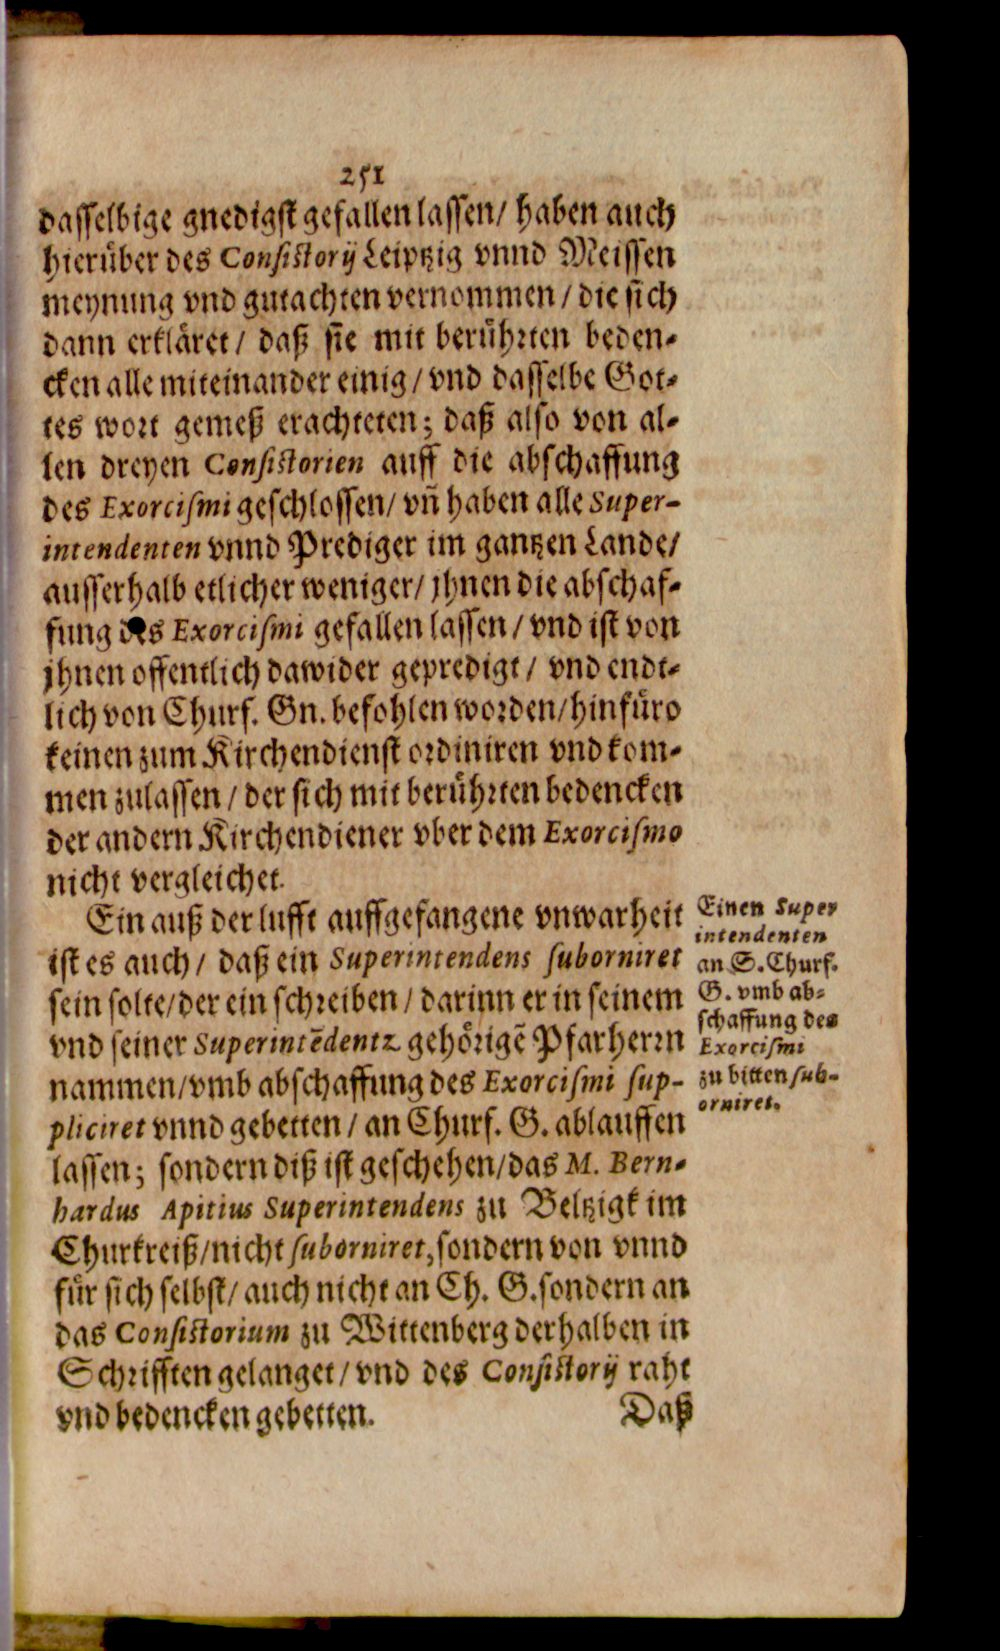 251
dasselbige gnedigst gefallen lassen/ haben auch
hierüber des Consistorij Leiptzig vnnd Meissen
meynung vnd gutachten vernommen / die sich
dann erkläret / daß sie mit berührten beden-
cken alle miteinander einig / vnd dasselbe Got-
tes wort gemeß erachteten; daß also von al-
len dreyen Consistorien auff die abschaffung
des Exorcismi geschlossen/ vñ haben alle Super-
intendenten vnnd Prediger im gantzen Lande/
ausserhalb etlicher weniger/ jhnen die abschaf-
fung des Exorcismi gefallen lassen / vnd ist von
jhnen offentlich dawider gepredigt / vnd endt-
lich von Churf. Gn. befohlen worden/hinfüro
keinen zum Kirchendienst ordiniren vnd kom-
men zulassen / der sich mit berührten bedencken
der andern Kirchendiener vber dem Exorcismo
nicht vergleichet.
Ein auß der lufft auffgefangene vnwarheit
ist es auch / daß ein Superintendens suborniret
sein solte/der ein schreiben / darinn er in seinem
vnd seiner Superintẽdentz gehörigẽ Pfarherrn
nammen/vmb abschaffung des Exorcismi sup-
pliciret vnnd gebetten / an Churf. G. ablauffen
lassen; sondern diß ist geschehen/das M. Bern-
hardus Apitius Superintendens zu Beltzigk im
Churkreiß/nicht suborniret, sondern von vnnd
für sich selbst/ auch nicht an Ch. G. sondern an
das Consistorium zu Wittenberg derhalben in
Schrifften gelanget / vnd des Consistorij raht
vnd bedencken gebetten.
Daß
Einen Super
intendenten
an S. Churf.
G. vmb ab-
schaffung des
Exorcismi
zu bitten sub-
orniret.